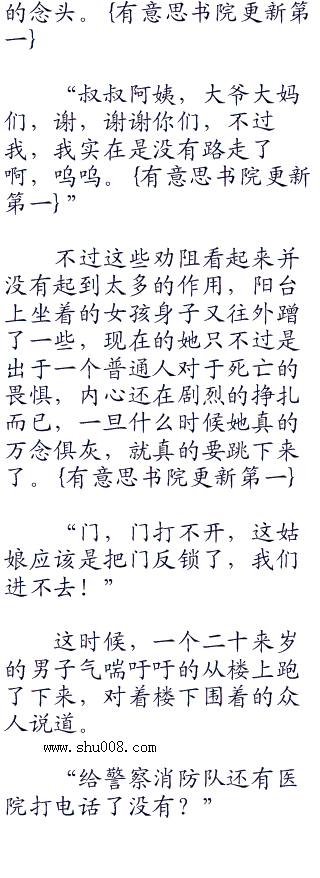 的念头。{有意思书院更新第
一}
“叔叔阿姨，大爷大妈
们，谢，谢谢你们，不过
我，我实在是没有路走了
啊，呜呜。{有意思书院更新
第一}”
不过这些劝阻看起来并
没有起到太多的作用，阳台
上坐着的女孩身子又往外蹭
了一些，现在的她只不过是
出于一个普通人对于死亡的
畏惧，内心还在剧烈的挣扎
而已，一旦什么时候她真的
万念俱灰，就真的要跳下来
了。{有意思书院更新第一}
“门，门打不开，这姑
娘应该是把门反锁了，我们
进不去！”
这时候，一个二十来岁
的男子气喘吁吁的从楼上跑
了下来，对着楼下围着的众
人说道。
www.shu008.com
“给警察消防队还有医
院打电话了没有？”